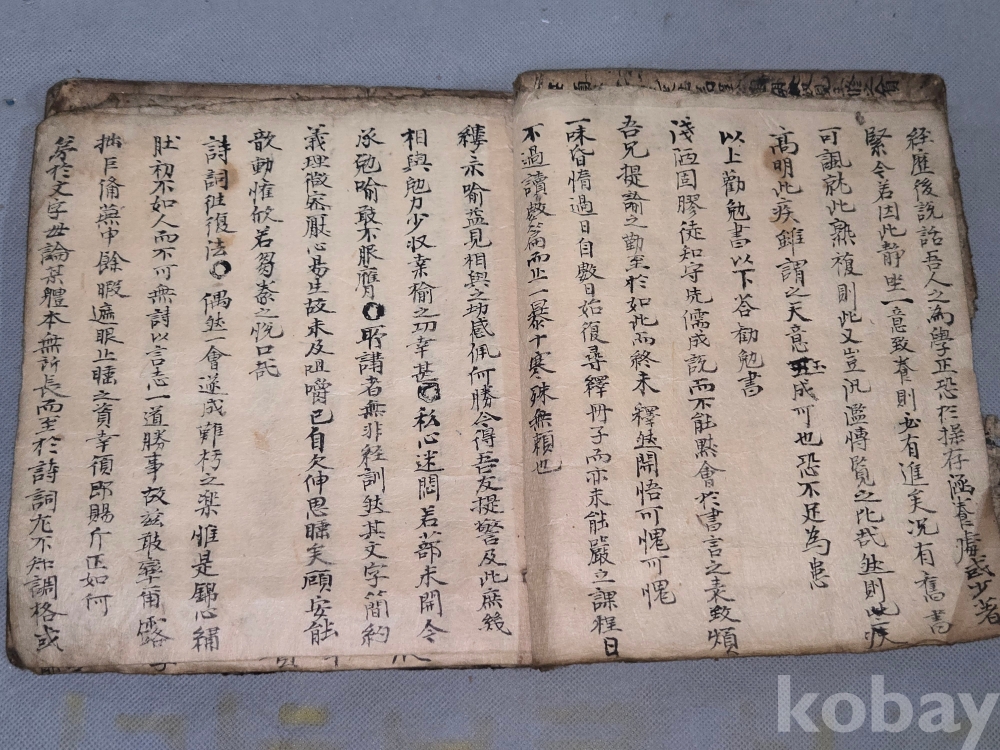 経歷後說話吾人之爲學正恐於操存涵養處或少著
緊令若因此静坐一意致養則必有進矣况有舊書
可諷就此熟複則此又豈汎濫慱覧之比哉然則此疾
髙明此疾雖謂之天意玉成可也恐不足為患
以上勸勉書以下答勸勉書
淺陋固膠徒知守先儒成說而不能黙會於書言之表致煩
吾兄提諭之勤至於如此而終未釋然開悟可愧可愧
一味昏惰過日自數日始復尋釋冊子而亦未能嚴立課程日
不過讀數篇而止一暴十寒殊無頼也
縷示喩益見相與之功感佩何勝令得吾友提警及此庶幾
相與勉力少収桒榆之功幸甚 私心迷悶若蔀未開令
承勉喻敢不服膺 所講者無非經訓然其文字簡約
義理微奥厭心易生故未及咀嚼已自欠伸思睡矣顧安能
歆動懽欣若芻豢之悅口㢤
詩詞往復法 偶然一會遂成難朽之楽惟是錦心繡
肚初不如人而不可無詩以言志一道勝事故玆敢率甫露
拙巨俻燕中餘暇遮眼止睡之資幸須郎賜斤正如何
於文字世論某體本無所長而至於詩詞尤不知調格或
kobay